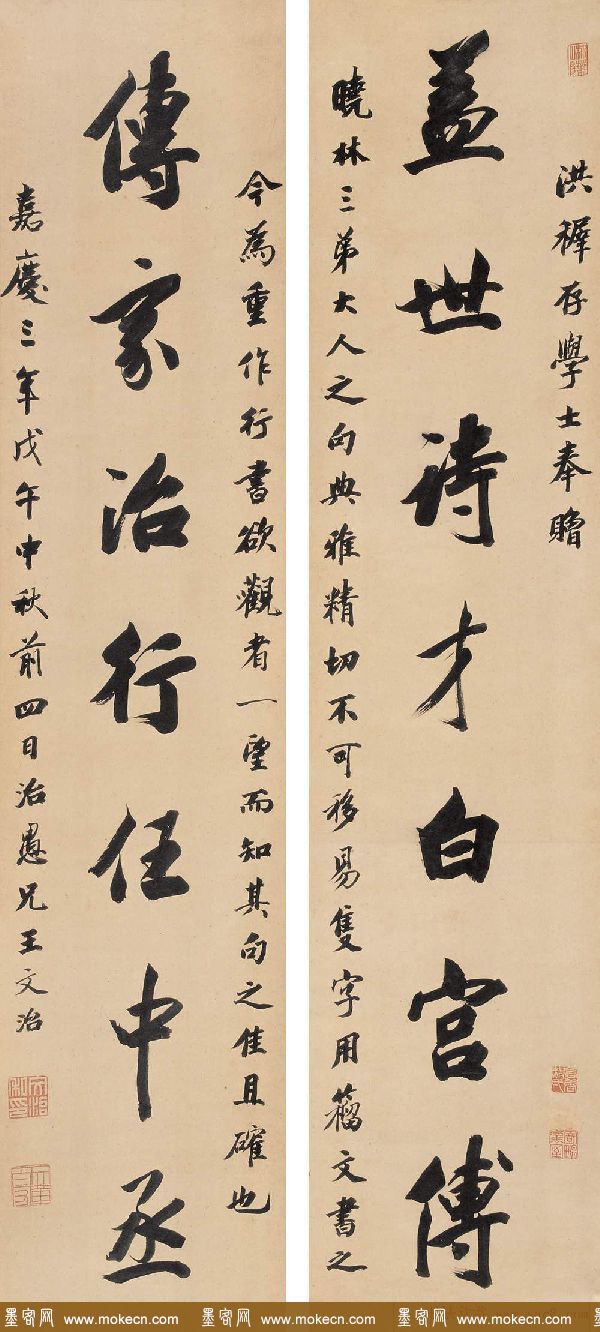 洪稺存學士奉贈
盖世詩才白宫傅
曉林三弟大人之句典雅精切不可移易隻字用籀文書之
今為重作行書欲觀者一望而知其句之佳且確也
傳家治行任中丞
嘉慶三年戊午中秋前四日治愚兄王文治
墨客网 www.mokecn.com 墨客网 www.mokecn.com 墨客网 www.mokecn.com